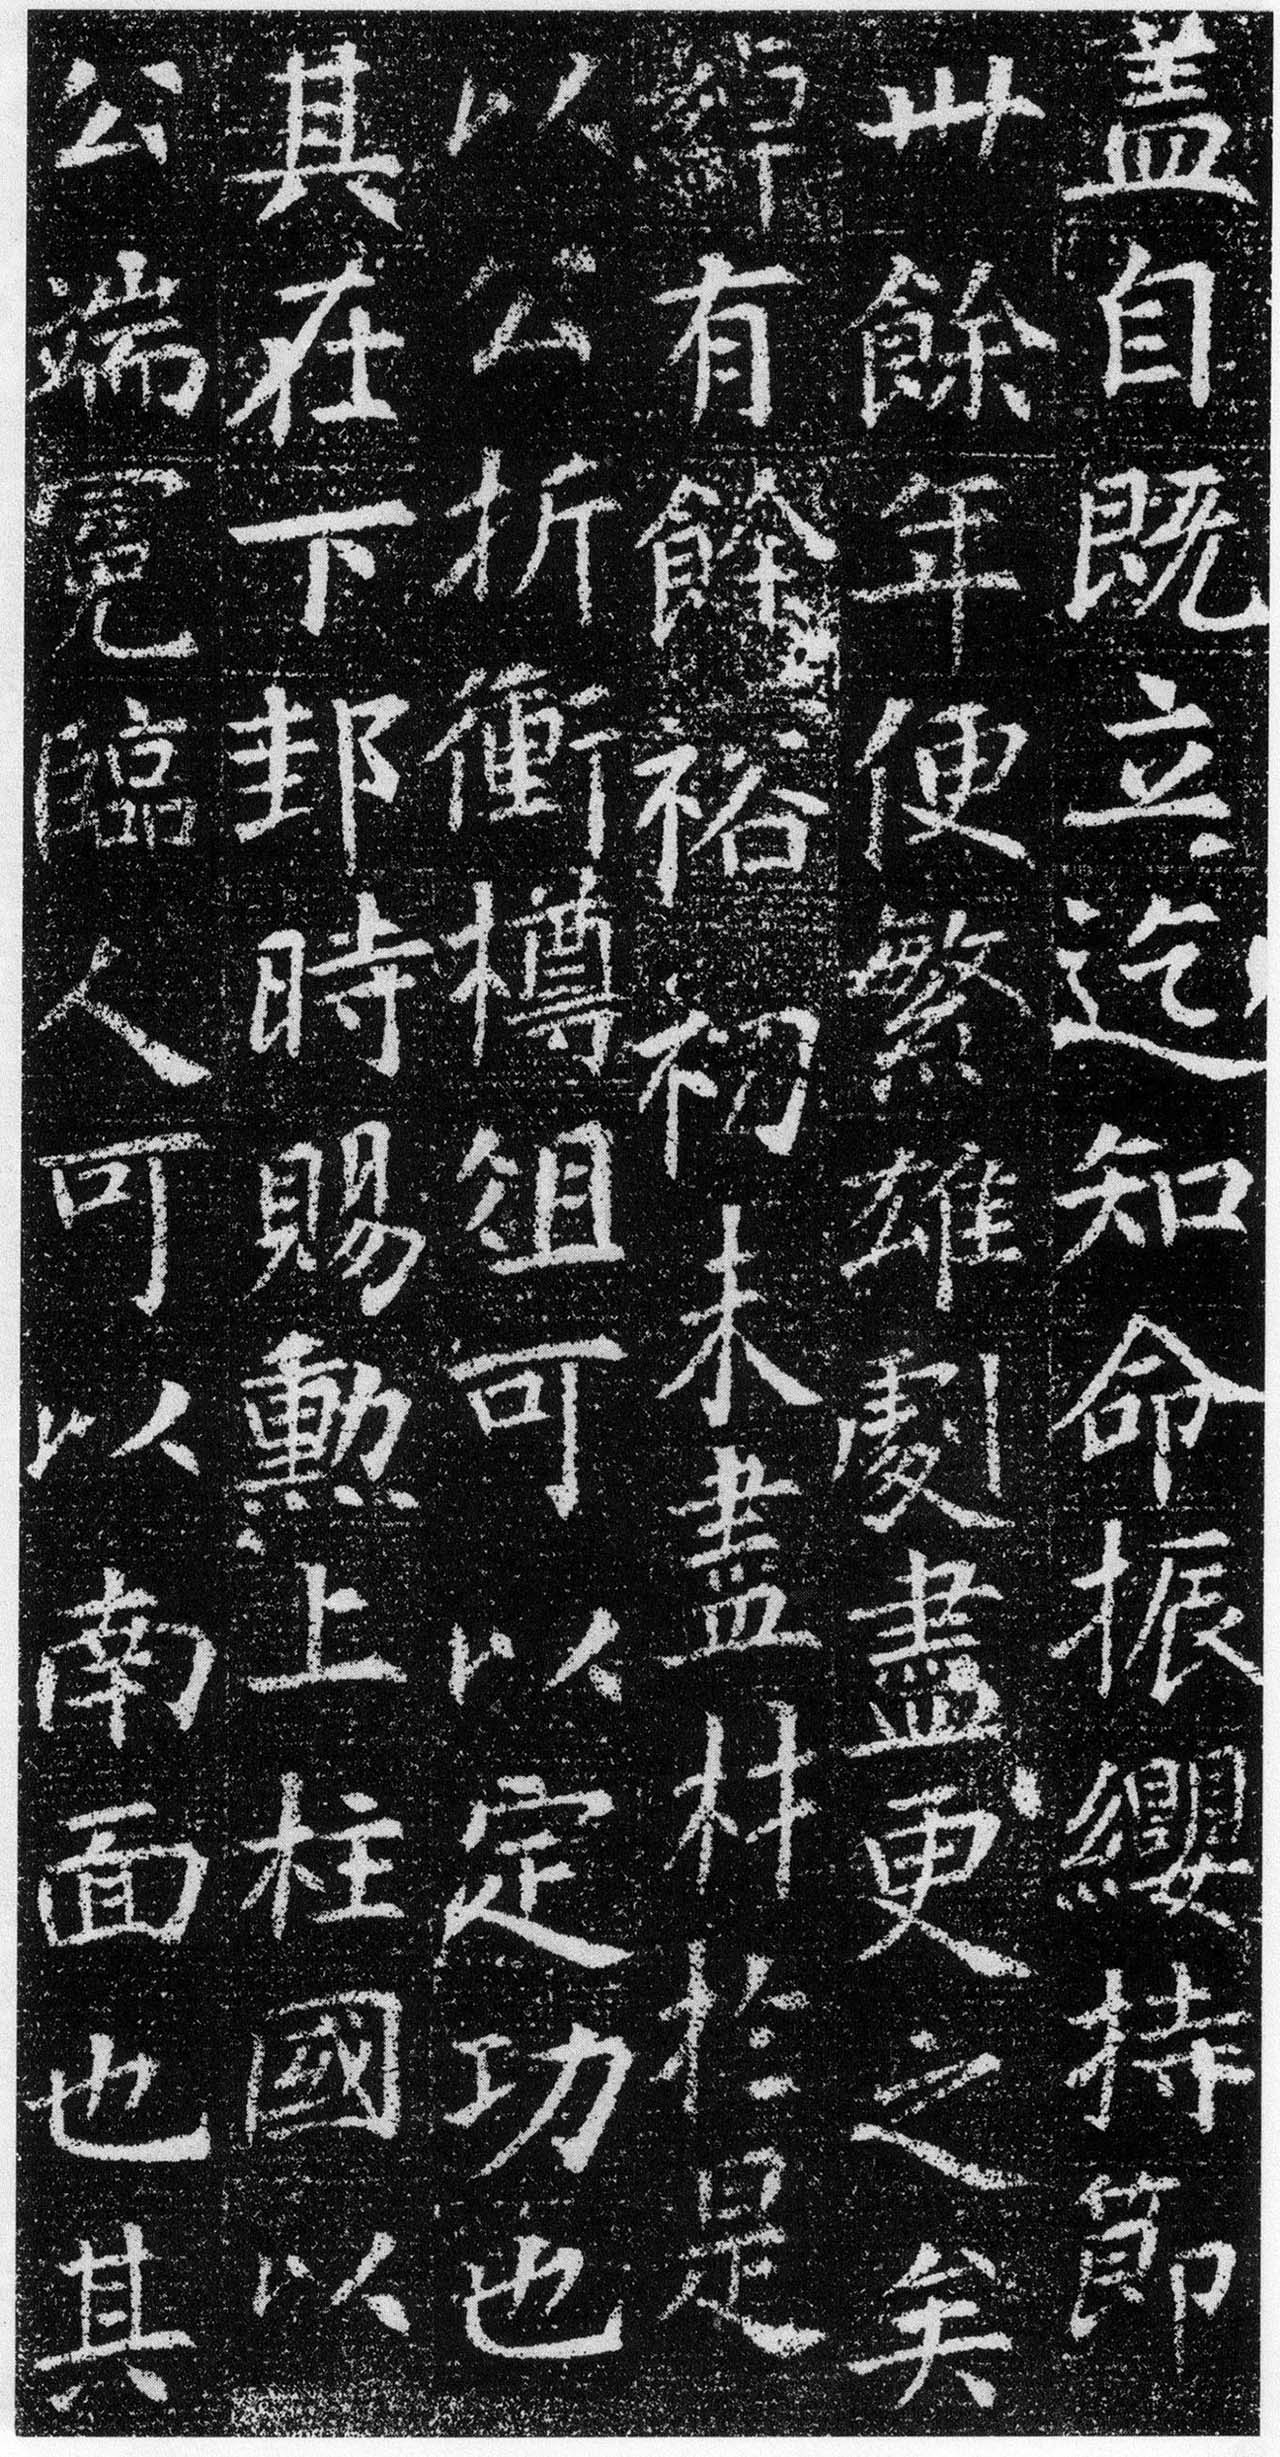 盖自既立迄知命振纓持節
卅餘年便繁雄劇盡更之矣
綽有餘裕初未盡材於是
以公折衝樽俎可以定功也
其在下邽時賜勲上柱國以
公端冕臨人可以南面也其